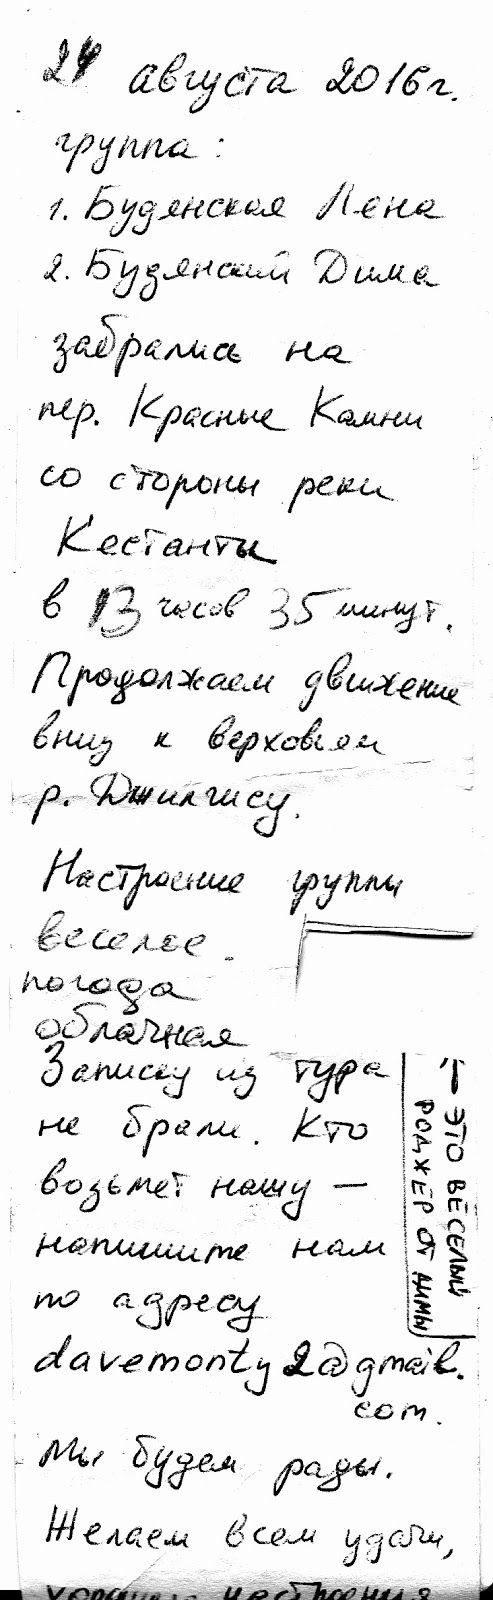 24 августа 2016 г.
группа:
1. Будянская Лена
2. Будянский Дима
забрались на
пер. Красные Камни
со стороны реки
Кестанты
в 13 часов 35 минут.
Продолжаем движение
вниз к верховьям
р. Джилгису.
Настроение группы
веселое.
погода
облачная
Записку из тура
не брали. Кто
возьмет нашу —
напишите нам
по адресу
davemonty2@gmail.
com.
Мы будем рады.
Желаем всем удачи,
настроения
↑ ЭТО ВЕСЕЛЫЙ
РОДЖЕР ОТ ДИМЫ